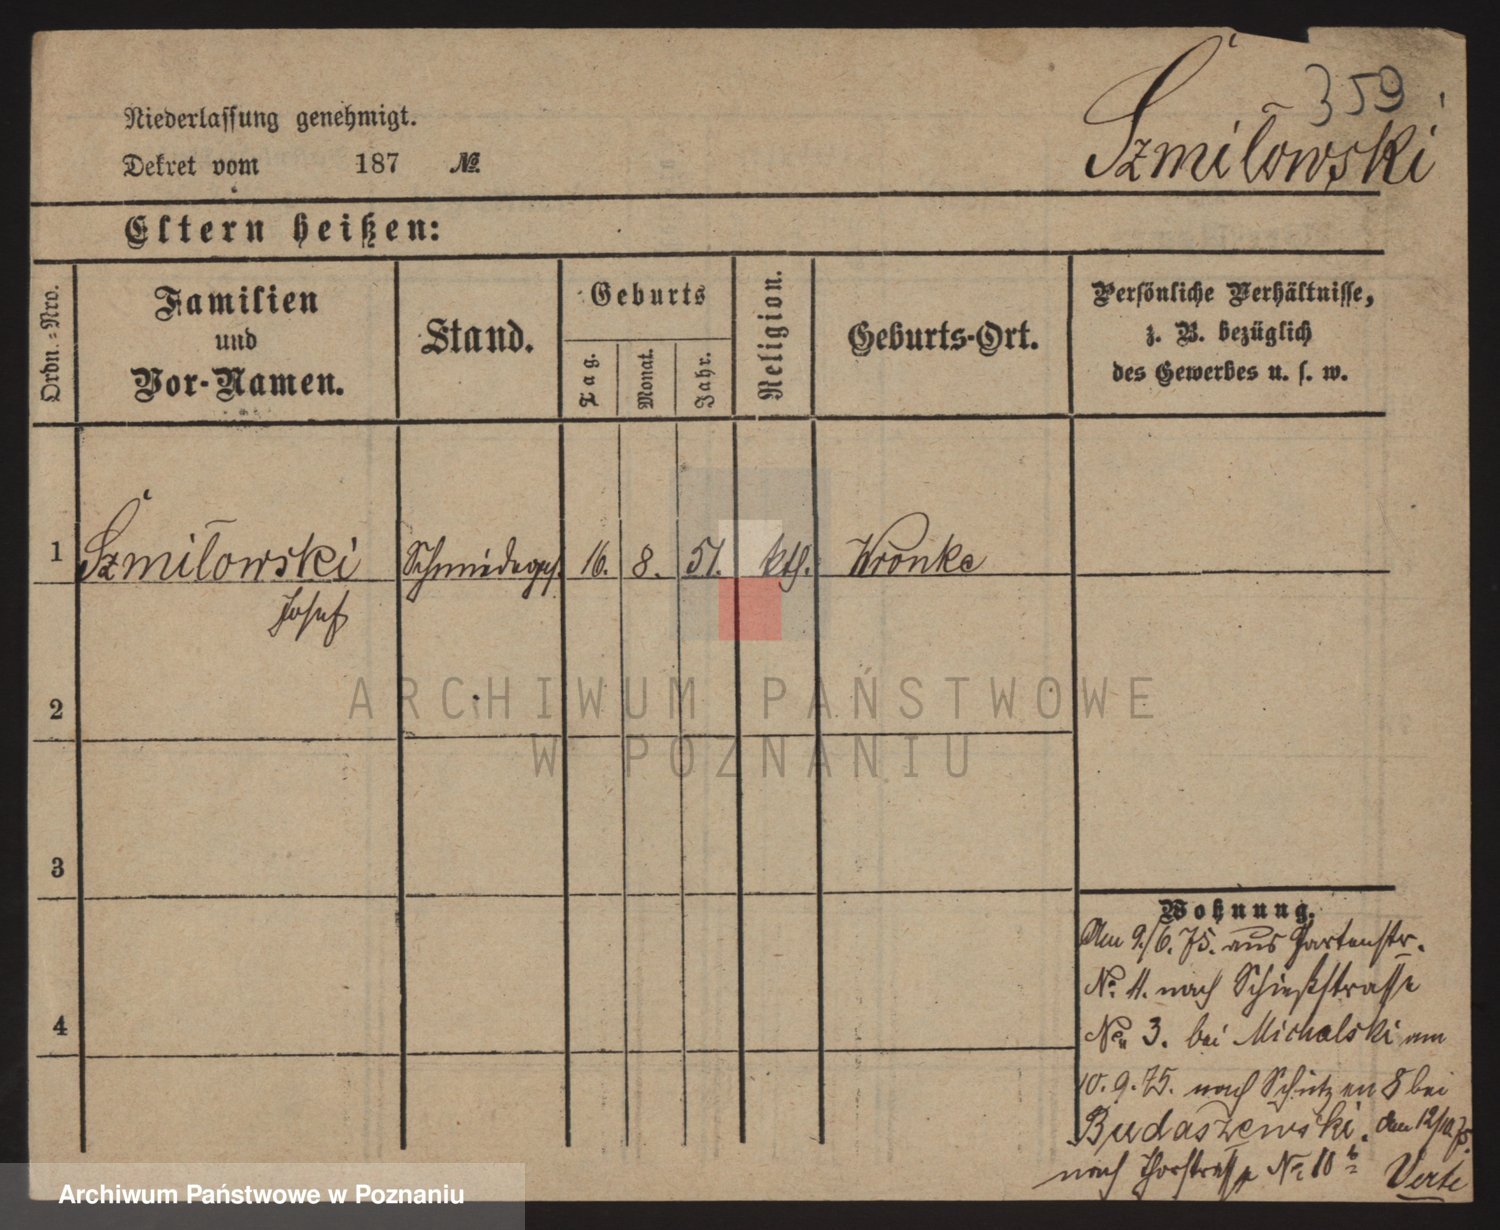 359
Szmilowski
Niederlassung genehmigt.
Dekret vom 187 №
Eltern heißen:
Ordn.=Nro.
Familien
und
Vor-Namen.
Stand.
Geburts
Tag.
Monat.
Jahr.
Religion.
Geburts-Ort.
Persönliche Verhältnisse,
z. B. bezüglich
des Gewerbes u. s. w.
1 Szmilowski Schmiedeges. 16. 8. 51. kth. Wronke
Josef
2
3
4
Wohnung.
Am 9./6. 75. aus Gartenstr.
No. 11. nach Schießstrasse
No. 3. bei Michalski am
10. 9. 75. nach Schützen 8 bei
Budaszewski. den 12/10 75.
nach No. 10 b Verte
ARCHIWUM PAŃSTWOWE
W POZNANIU
Archiwum Państwowe w Poznaniu